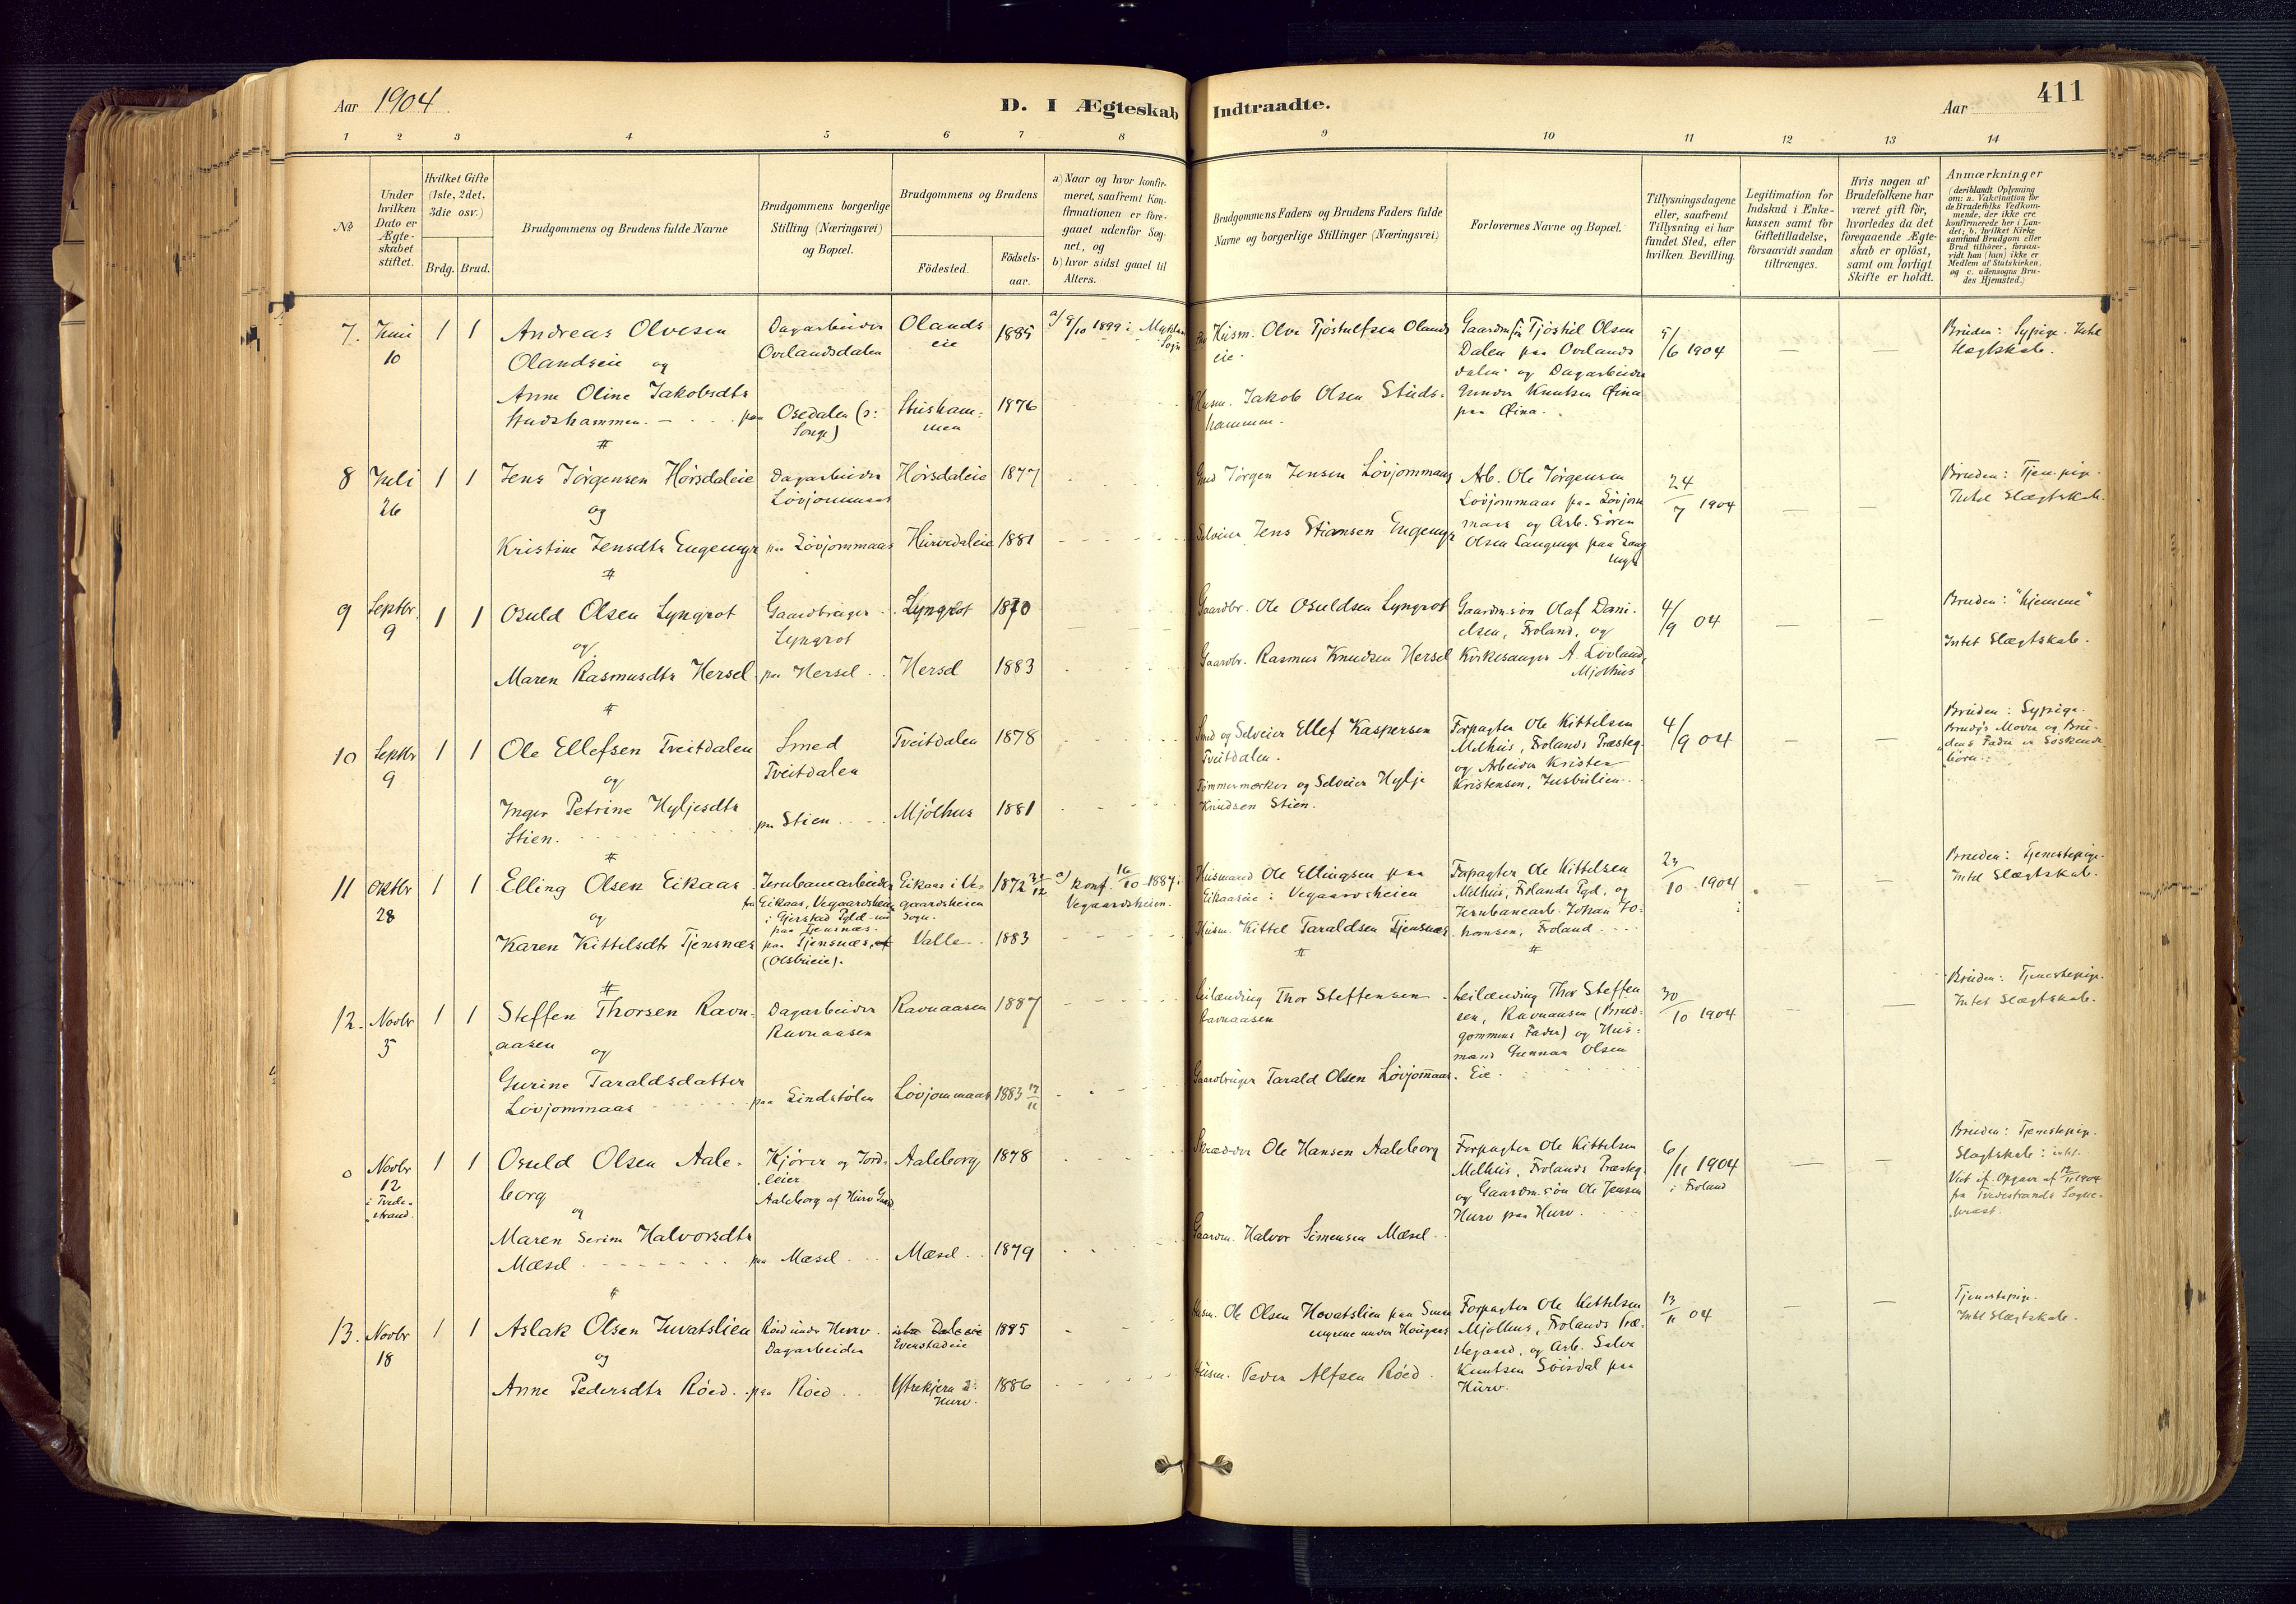 Aar 1904
D. I Ægteskab Indtraadte.
Aar
411
1 2 3 4 5 6 7 8 9 10 11 12 13 14
No
Under
hvilken
Dato er
Ægte-
skabet
stiftet.
Hvilket Gifte
(1ste, 2det,
3die osv.)
Brdg. Brud.
Brudgommens og Brudens fulde Navne
Brudgommens borgerlige
Stilling (Næringsvei)
og Bopæl.
Brudgommens og Brudens
Födested.
Födsels-
aar.
a) Naar og hvor konfir-
meret, saafremt Kon-
firmationen er fore-
gaaet udenfor Sog-
net, og
b) hvor sidst gaaet til
Alters.
Brudgommens Faders og Brudens Faders fulde
Navne og borgerlige Stillinger (Næringsvei)
Forlovernes Navne og Bopæl.
Tillysningsdagene
eller, saafremt
Tillysning ei har
fundet Sted, efter
hvilken Bevilling.
Legitimation for
Indskud i Enke-
kassen samt for
Giftetilladelse,
forsaavidt saadan
tiltrænges.
Hvis nogen af
Brudefolkene har
været gift för,
hvorledes da det
foregaaende Ægte-
skab er oplöst,
samt om lovligt
Skifte er holdt.
Anmærkninger
(deriblandt Oplysning
om: a. Vakcination for
de Brudefolks Vedkom-
mende, der ikke ere
konfirmerede her i Lan-
det; b. hvilket Kirke
samfund Brudgom eller
Brud tilhörer, forsaa-
vidt han (hun) ikke er
Medlem af Statskirken,
og c. udensogns Bru-
des Hjemsted.)
7. Juni
10
1 1
Andreas Olvesen
Olandseie og
Anne Oline Jakobsdtr
Studshammen.
Dagarbeider
Ovelandsdalen
paa Osedalen (o:
Songe)
Olands
eie
Stusham-
men
1885
1876
a/ 9/10 1899 i Mykland
Sogn
Husm. Olve Tjøstulfsen Olands
eie.
Husm. Jakob Olsen Studs-
hammen.
Gaardmsøn Tjøstil Olsen
Dalen paa Ovelands
dalen og Dagarbeider
Gunder Knutsen Øina
paa Øina.
5/6 1904
Bruden: Sypige. Intet
Slægtskab.
8 Juli
26
1 1
Jens Jørgensen Hørsdaleie
og
Kristine Jensdtr Engemyr
Dagarbeider
Løvjommaas
paa Løvjommaas
Hørsdaleie
Hurvedaleie
1877
1881
Jørgen Jensen Løvjommaas
Selveier Jens Stiansen Engemyr
Arb. Ole Jørgensen
Løvjommaas paa Løvjom
maas og Arb. Søren
Olsen Langmyr paa Lang
myr
24/7 1904
Bruden: Tjen.pige.
Intet Slægtskab.
9 Septbr
9
1 1
Osuld Olsen Lyngrot
og
Maren Rasmusdtr Hersel
Gaardbruger
Lyngrot
paa Hersel
Lyngrot
Hersel
1870
1883
Gaardbr. Ole Osuldsen Lyngrot
Gaardbr. Rasmus Knudsen Hersel
Gaardm.søn Olaf Dani-
elsen, Froland, og
Kirkesanger A. Løvland,
Mjølhus
4/9 04
Bruden: "hjemme"
Intet Slægtskab.
10 Septbr
9
1 1
Ole Ellefsen Tveitdalen
og
Inger Petrine Hyljesdtr
Stien.
Smed
Tveitdalen
paa Stien
Tveitdalen
Mjölhus
1878
1881
Smed og Selveier Ellef Kaspersen
Tveitdalen.
Tømmermerker og Selveier Hylje
Knudsen Stien.
Forpagter Ole Kittelsen
Melhus, Frolands Præsteg.
og Arbeider Kristen
Kristensen, Jusbulien.
4/9 04
Bruden: Sypige.
Brudg's Moder og Bru-
dens Fader er Søskende
børn.
11 Oktbr
28
1 1
Elling Olsen Eikaas
og
Karen Kittelsdtr Tjensnæs
Jernbanearbeider
fra Eikaas, Vegaardsheien
i Gjerstad Pgld. nu
paa Tjensnæs.
paa Tjensnæs,
(Olsbueie).
Eikaas i Ve-
gaardsheien
Sogn.
Valle
1872
1883
a) konf. 16/10 1887 i
Vegaardsheien.
Husmand Ole Ellingsen paa
Eikaaseie i Vegaardsheien
Husm. Kittel Taraldsen Tjensnæs
Forpagter Ole Kittelsen
Melhus, Frolands Pgd, og
Jernbanearb. Johan Jo-
hansen, Froland.
23/10 1904
Bruden: Tjenestepige.
Intet Slægtskab.
12. Novbr
5
1 1
Steffen Thorsen Ravn-
aasen
og
Gurine Taraldsdatter
Løvjommaas
Dagarbeider
Ravnaasen
paa Lindstølen
Ravnaasen
Løvjommaas
1887
1883 17/11
Leilænding Thor Steffensen
Ravnaasen
Gaardbruger Tarald Olsen Løvjommaas.
Leilænding Thor Steffen
sen, Ravnaasen (Brud-
gommens Fader) og Hus-
mand Gunnar Olsen
Eie.
30/10 1904
Bruden: Tjenestepige.
Intet Slægtskab.
0 Novbr
12
i Tvede-
strand.
1 1
Osuld Olsen Aale-
borg
og
Maren Serine Halvorsdtr
Mæsel
Kjører og Jord-
leier
Aaleborg af Hurv
paa Mæsel
Aaleborg
Mæsel
1878
1879
Skrædder Ole Hansen Aaleborg
Gaardm. Halvor Simensen Mæsel
Forpagter Ole Kittelsen
Melhus, Frolands Præsteg.
og Gaardm.søn Ole Jensen
Hurv paa Hurv.
6/11 1904
i Froland
Bruden: Tjenestepige.
Slægtskab: intet.
Viet if. Opgave af 12/11 1904
fra Tvedestrands Sogne-
præst.
13. Novbr
18
1 1
Aslak Olsen Juvatslien
og
Anne Pedersdtr Röed
Röed under Hurv.
Dagarbeider
paa Röed
Evenstadeie
Ystrekjern o:
Hurv.
1885
1886
Husm. Ole Olsen Hovatslien paa
engene under Haugaas
Husm. Peder Alfsen Röed.
Forpagter Ole Kittelsen
Mjølhus, Frolands Præ-
stegaard, og Arb. Salve
Knutsen Søisdal paa
Hurv.
13/11 04
Tjenestepige.
Intet Slægtskab.